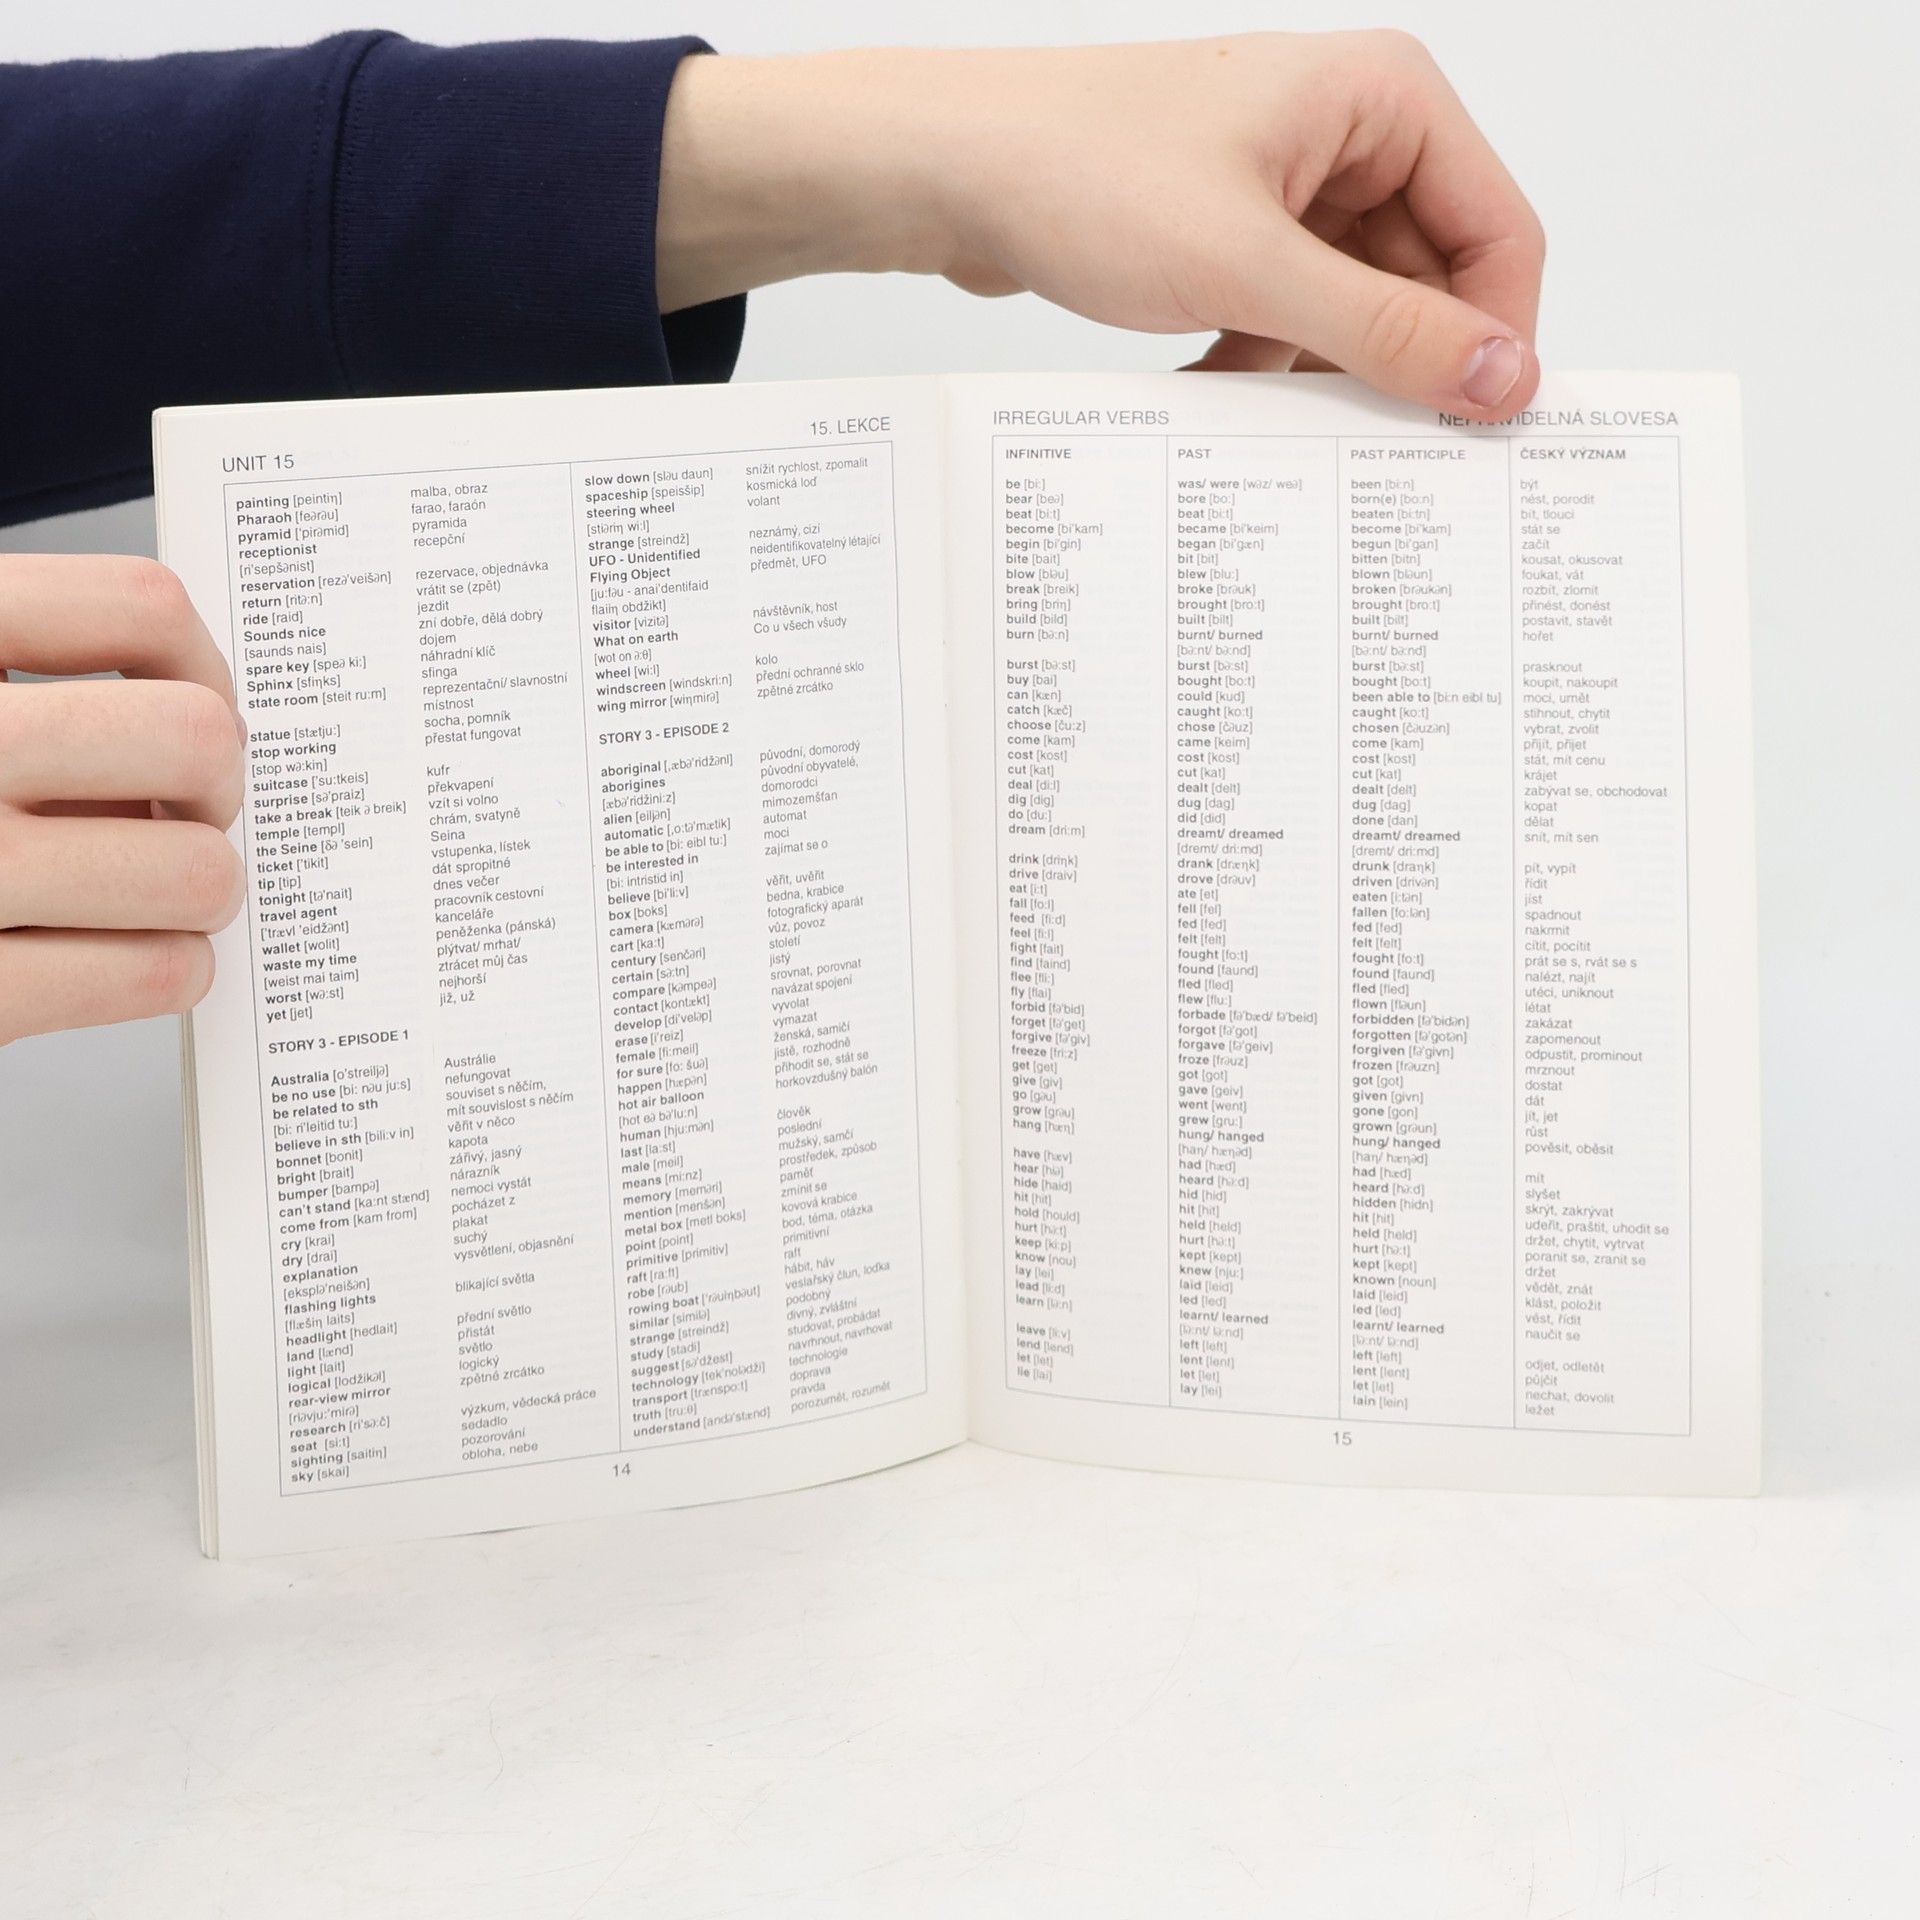 UNIT 15
15. LEKCE
painting [peintiŋ] malba, obraz
Pharaoh [feərəu] farao, faraón
pyramid ['pirəmid] pyramida
receptionist recepční
[ri'sepšənist]
reservation [rezə'veišən] rezervace, objednávka
return [ritə:n] vrátit se (zpět)
ride [raid] jezdit
Sounds nice zní dobře, dělá dobrý
[saunds nais] dojem
spare key [speə ki:] náhradní klíč
Sphinx [sfiŋks] sfinga
state room [steit ru:m] reprezentační/ slavnostní
místnost
statue [stætju:] socha, pomník
stop working přestat fungovat
[stop wə:kiŋ]
suitcase ['su:tkeis] kufr
surprise [sə'praiz] překvapení
take a break [teik ə breik] vzít si volno
temple [templ] chrám, svatyně
the Seine [ðə 'sein] Seina
ticket ['tikit] vstupenka, lístek
tip [tip] dát spropitné
tonight [tə'nait] dnes večer
travel agent pracovník cestovní
['trævl 'eidžənt] kanceláře
wallet [wolit] peněženka (pánská)
waste my time plýtvat/ mrhat/
[weist mai taim] ztrácet můj čas
worst [wə:st] nejhorší
yet [jet] již, už
STORY 3 - EPISODE 1
Australia [o'streiljə] Austrálie
be no use [bi: nəu ju:s] nefungovat
be related to sth souviset s něčím,
[bi: ri'leitid tu:] mít souvislost s něčím
believe in sth [bili:v in] věřit v něco
bonnet [bonit] kapota
bright [brait] zářivý, jasný
bumper [bampə] nárazník
can't stand [ka:nt stænd] nemoci vystát
come from [kam from] pocházet z
cry [krai] plakat
dry [drai] suchý
explanation vysvětlení, objasnění
[eksplə'neišən]
flashing lights blikající světla
[flæšiŋ laits]
headlight [hedlait] přední světlo
land [lænd] přistát
light [lait] světlo
logical [lodžikəl] logický
rear-view mirror zpětné zrcátko
[riəvju:'mirə]
research [ri'sə:č] výzkum, vědecká práce
seat [si:t] sedadlo
sighting [saitiŋ] pozorování
sky [skai] obloha, nebe
slow down [sləu daun] snížit rychlost, zpomalit
spaceship [speisšip] kosmická loď
steering wheel volant
[stiəriŋ wi:l]
strange [streindž] neznámý, cizí
UFO - Unidentified neidentifikovatelný létající
Flying Object předmět, UFO
[ju:fəu - anai'dentifaid
flaiiŋ obdžikt]
visitor [vizitə] návštěvník, host
What on earth Co u všech všudy
[wot on ə:θ]
wheel [wi:l] kolo
windscreen [windskri:n] přední ochranné sklo
wing mirror [wiŋmirə] zpětné zrcátko
STORY 3 - EPISODE 2
aboriginal [,æbə'ridžənl] původní, domorodý
aborigines původní obyvatelé,
[æbə'ridžini:z] domorodci
alien [eiljən] mimozemšťan
automatic [,o:tə'mætik] automat
be able to [bi: eibl tu:] moci
be interested in zajímat se o
[bi: intristid in]
believe [bi'li:v] věřit, uvěřit
box [boks] bedna, krabice
camera [kæmərə] fotografický aparát
cart [ka:t] vůz, povoz
century [senčəri] století
certain [sə:tn] jistý
compare [kəmpeə] srovnat, porovnat
contact [kontækt] navázat spojení
develop [di'veləp] vyvolat
erase [i'reiz] vymazat
female [fi:meil] ženská, samičí
for sure [fo: šuə] jistě, rozhodně
happen [hæpən] přihodit se, stát se
hot air balloon horkovzdušný balón
[hot eə bə'lu:n]
human [hju:mən] člověk
last [la:st] poslední
male [meil] mužský, samčí
means [mi:nz] prostředek, způsob
memory [meməri] paměť
mention [menšən] zmínit se
metal box [metl boks] kovová krabice
point [point] bod, téma, otázka
primitive [primitiv] primitivní
raft [ra:ft] raft
robe [rəub] hábit, háv
rowing boat ['rəuiŋbəut] veslařský člun, loďka
similar [similə] podobný
strange [streindž] divný, zvláštní
study [stadi] studovat, probádat
suggest [sə'džest] navrhnout, navrhovat
technology [tek'nolədži] technologie
transport [trænspo:t] doprava
truth [tru:θ] pravda
understand [andə'stænd] porozumět, rozumět
14
IRREGULAR VERBS
SLOVESA
INFINITIVE PAST PAST PARTICIPLE ČESKÝ VÝZNAM
be [bi:] was/ were [wəz/ weə] been [bi:n] být
bear [beə] bore [bo:] born(e) [bo:n] nést, porodit
beat [bi:t] beat [bi:t] beaten [bi:tn] bít, tlouci
become [bi'kam] became [bi'keim] become [bi'kam] stát se
begin [bi'gin] began [bi'gæn] begun [bi'gan] začít
bite [bait] bit [bit] bitten [bitn] kousat, okusovat
blow [bləu] blew [blu:] blown [bləun] foukat, vát
break [breik] broke [brəuk] broken [brəukən] rozbít, zlomit
bring [briŋ] brought [bro:t] brought [bro:t] přinést, donést
build [bild] built [bilt] built [bilt] postavit, stavět
burn [bə:n] burnt/ burned burnt/ burned hořet
[bə:nt/ bə:nd] [bə:nt/ bə:nd]
burst [bə:st] burst [bə:st] burst [bə:st] prasknout
buy [bai] bought [bo:t] bought [bo:t] koupit, nakoupit
can [kæn] could [kud] been able to [bi:n eibl tu] moci, umět
catch [kæč] caught [ko:t] caught [ko:t] stihnout, chytit
choose [ču:z] chose [čəuz] chosen [čəuzən] vybrat, zvolit
come [kam] came [keim] come [kam] přijít, přijet
cost [kost] cost [kost] cost [kost] stát, mít cenu
cut [kat] cut [kat] cut [kat] krájet
deal [di:l] dealt [delt] dealt [delt] zabývat se, obchodovat
dig [dig] dug [dag] dug [dag] kopat
do [du:] did [did] done [dan] dělat
dream [dri:m] dreamt/ dreamed dreamt/ dreamed snít, mít sen
[dremt/ dri:md] [dremt/ dri:md]
drink [driŋk] drank [dræŋk] drunk [draŋk] pít, vypít
drive [draiv] drove [drəuv] driven [drivən] řídit
eat [i:t] ate [et] eaten [i:tən] jíst
fall [fo:l] fell [fel] fallen [fo:lən] spadnout
feed [fi:d] fed [fed] fed [fed] nakrmit
feel [fi:l] felt [felt] felt [felt] cítit, pocítit
fight [fait] fought [fo:t] fought [fo:t] prát se s, rvát se s
find [faind] found [faund] found [faund] nalézt, najít
flee [fli:] fled [fled] fled [fled] utéci, uniknout
fly [flai] flew [flu:] flown [fləun] létat
forbid [fə'bid] forbade [fə'bæd/ fə'beid] forbidden [fə'bidən] zakázat
forget [fə'get] forgot [fə'got] forgotten [fə'gotən] zapomenout
forgive [fə'giv] forgave [fə'geiv] forgiven [fə'givn] odpustit, prominout
freeze [fri:z] froze [frəuz] frozen [frəuzn] mrznout
get [get] got [got] got [got] dostat
give [giv] gave [geiv] given [givn] dát
go [gəu] went [went] gone [gon] jít, jet
grow [grəu] grew [gru:] grown [grəun] růst
hang [hæŋ] hung/ hanged hung/ hanged pověsit, oběsit
[haŋ/ hæŋəd] [haŋ/ hæŋəd]
have [hæv] had [hæd] had [hæd] mít
hear [hiə] heard [hə:d] heard [hə:d] slyšet
hide [haid] hid [hid] hidden [hidn] skrýt, zakrývat
hit [hit] hit [hit] hit [hit] udeřit, praštit, uhodit se
hold [hould] held [held] held [held] držet, chytit, vytrvat
hurt [hə:t] hurt [hə:t] hurt [hə:t] poranit se, zranit se
keep [ki:p] kept [kept] kept [kept] držet
know [nou] knew [nju:] known [noun] vědět, znát
lay [lei] laid [leid] laid [leid] klást, položit
lead [li:d] led [led] led [led] vést, řídit
learn [lə:n] learnt/ learned learnt/ learned naučit se
[lə:nt/ lə:nd] [lə:nt/ lə:nd]
leave [li:v] left [left] left [left] odjet, odletět
lend [lend] lent [lent] lent [lent] půjčit
let [let] let [let] let [let] nechat, dovolit
lie [lai] lay [lei] lain [lein] ležet
15